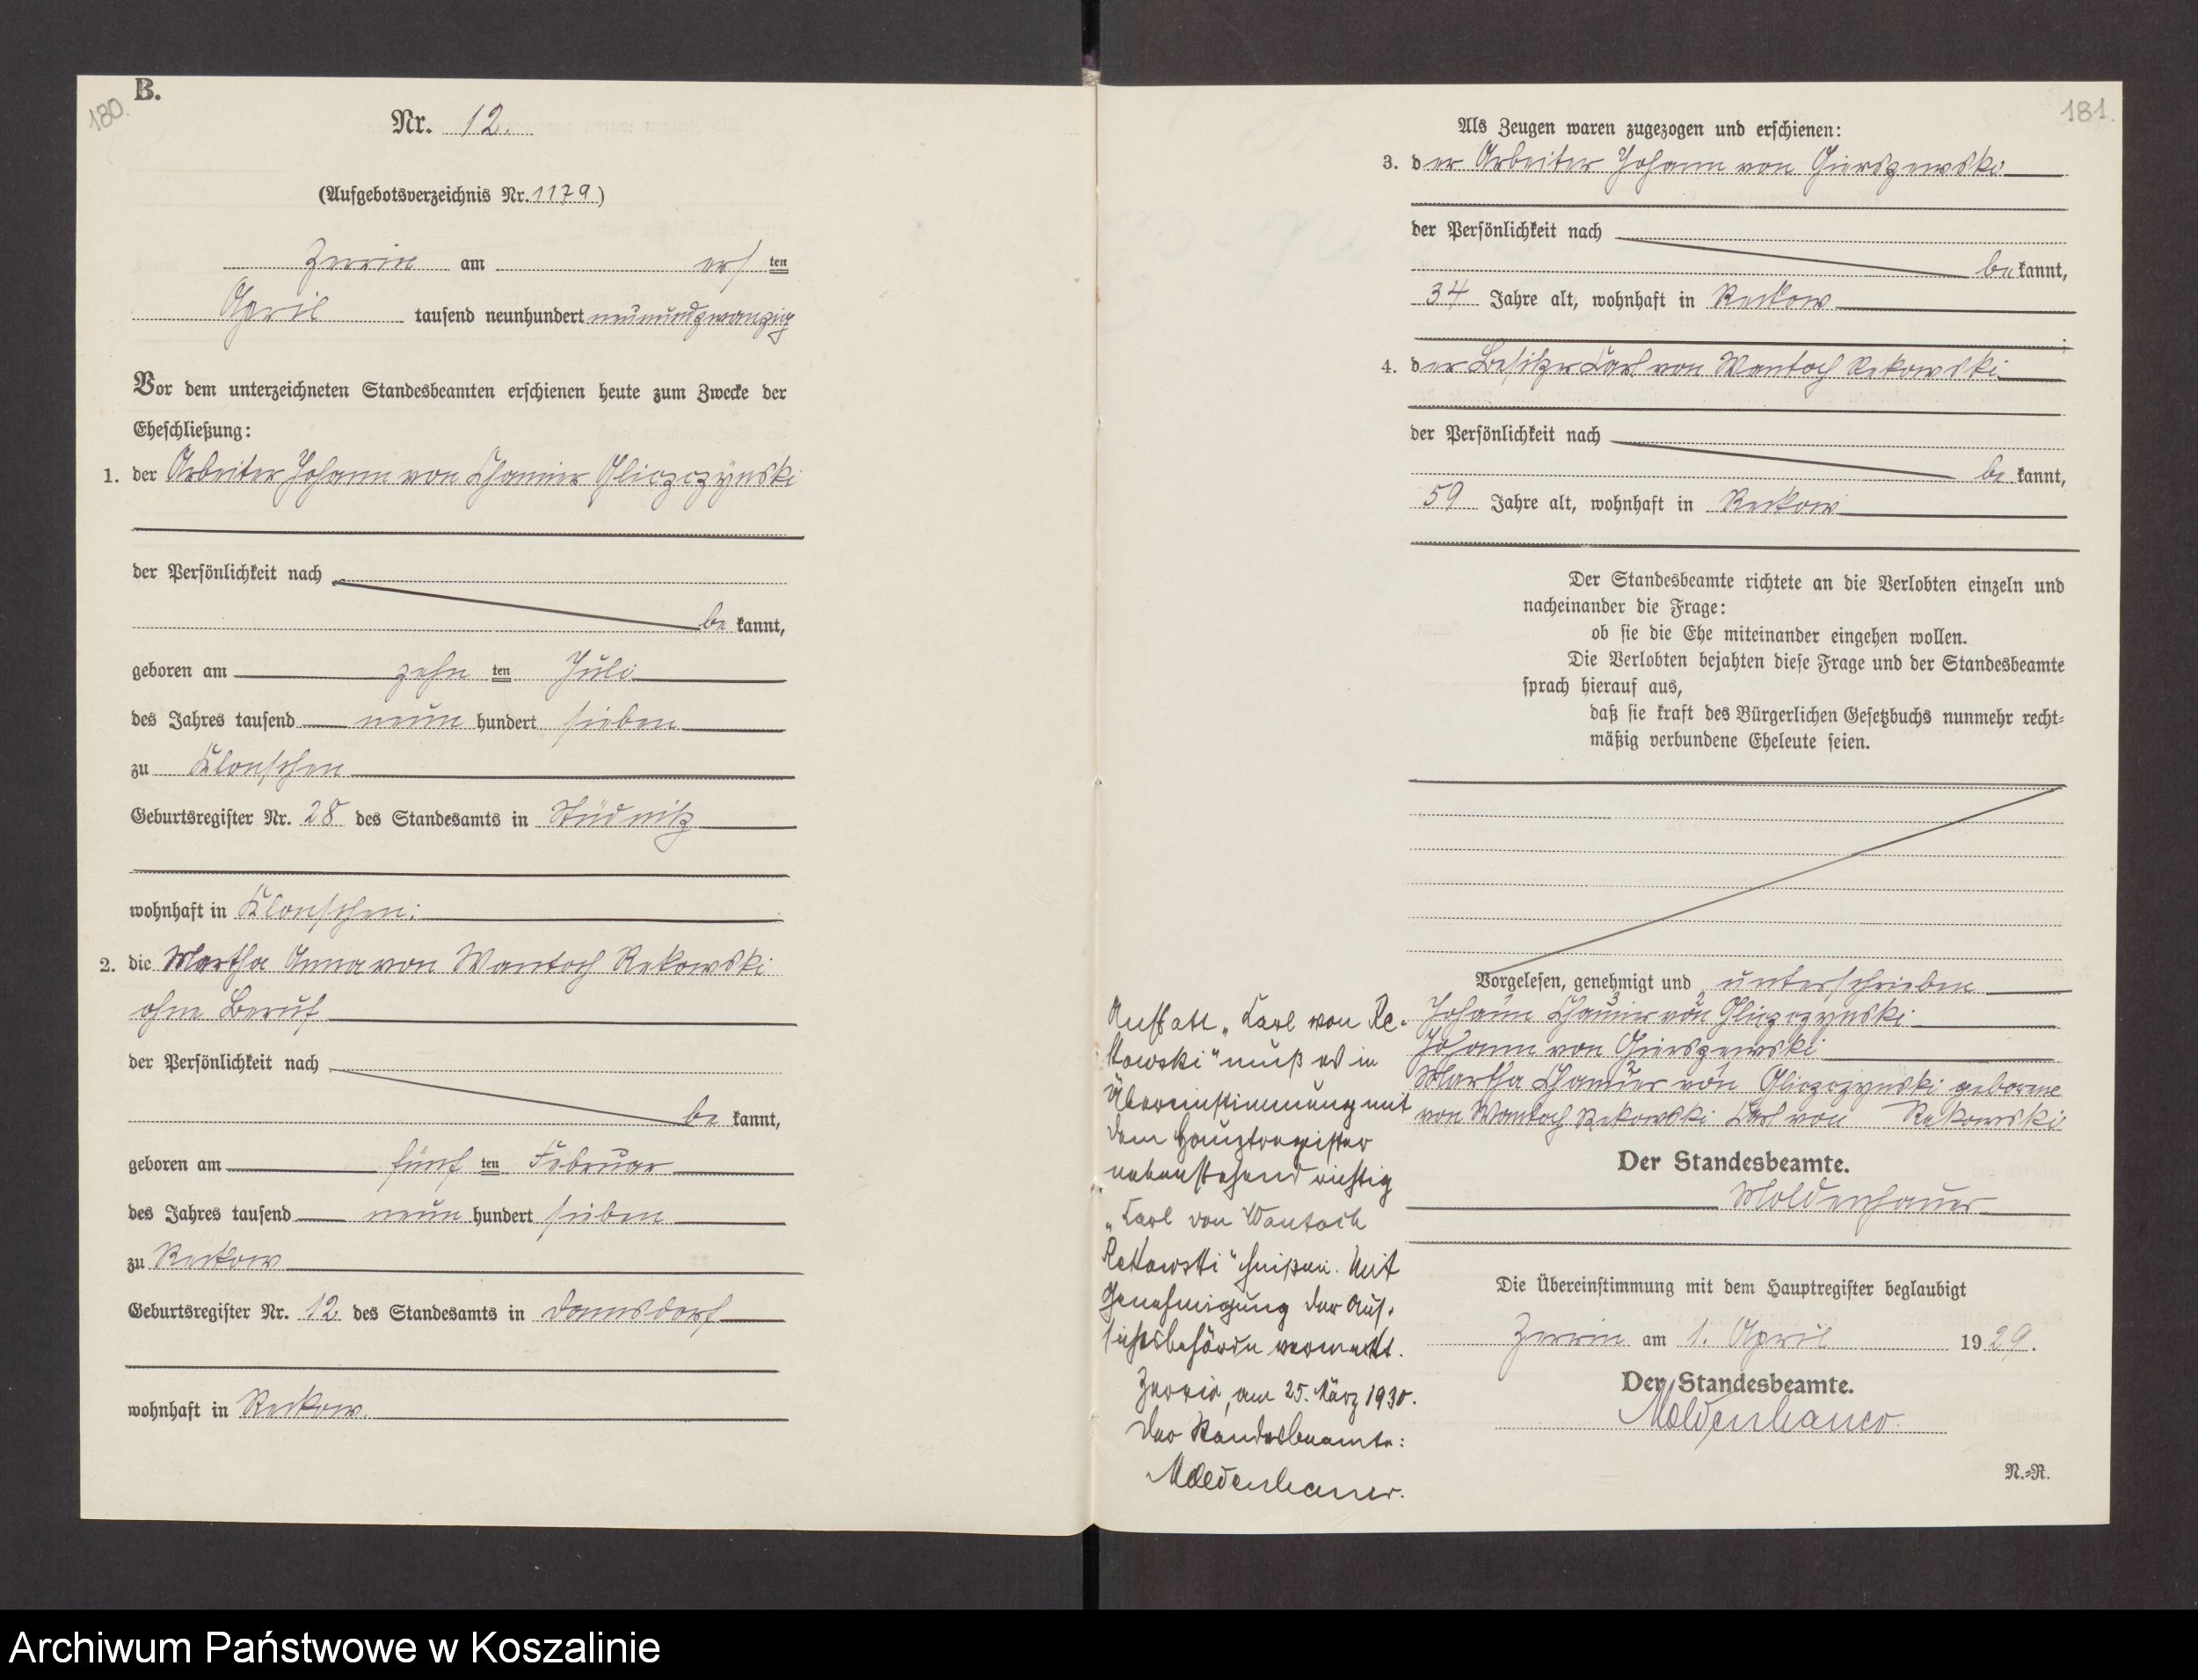 180.
B.
Nr. 12.
(Aufgebotsverzeichnis Nr. 1179)
Zerrin am ersten
April tausend neunhundert neunundzwanzig
Vor dem unterzeichneten Standesbeamten erschienen heute zum Zwecke der
Eheschließung:
1. der Arbeiter Johann von Chamier Gliszczynski
der Persönlichkeit nach
bekannt,
geboren am zehnten Juli
des Jahres tausend neun hundert sieben
zu Klonschen
Geburtsregister Nr. 28 des Standesamts in Stüdnitz
wohnhaft in Klonschen.
2. die Martha Anna von Wantoch Rekowski
ohne Beruf
der Persönlichkeit nach
bekannt,
geboren am fünften Februar
des Jahres tausend neun hundert sieben
zu Reckow
Geburtsregister Nr. 12 des Standesamts in Damsdorf
wohnhaft in Reckow.
181.
Als Zeugen waren zugezogen und erschienen:
3. der Arbeiter Johann von
der Persönlichkeit nach
bekannt,
34 Jahre alt, wohnhaft in Reckow
4. der Besitzer Karl von Wantoch Rekowski
der Persönlichkeit nach
bekannt,
59 Jahre alt, wohnhaft in Reckow
Der Standesbeamte richtete an die Verlobten einzeln und
nacheinander die Frage:
ob sie die Ehe miteinander eingehen wollen.
Die Verlobten bejahten diese Frage und der Standesbeamte
sprach hierauf aus,
daß sie kraft des Bürgerlichen Gesetzbuchs nunmehr recht-
mäßig verbundene Eheleute seien.
Vorgelesen, genehmigt und unterschrieben
Johann Chamier von Gliszczynski
Johann von Gierszewski
Martha Chamier von Gliszczynski geborene
von Wantoch Rekowski Karl von Rekowski
Der Standesbeamte.
Moldenhauer
Die Übereinstimmung mit dem Hauptregister beglaubigt
Zerrin am 1. April 1929.
Der Standesbeamte.
Moldenhauer.
N.-R.
Anstatt „Karl von Re-
kowski" muß es in
Übereinstimmung mit
dem Hauptregister
nebenstehend richtig
„Karl von Wantoch
Rekowski" heißen. Mit
Genehmigung der Auf-
sichtsbehörde vermerkt.
Zerrin, am 25. März 1930.
Der Standesbeamte:
Moldenhauer.
Archiwum Państwowe w Koszalinie